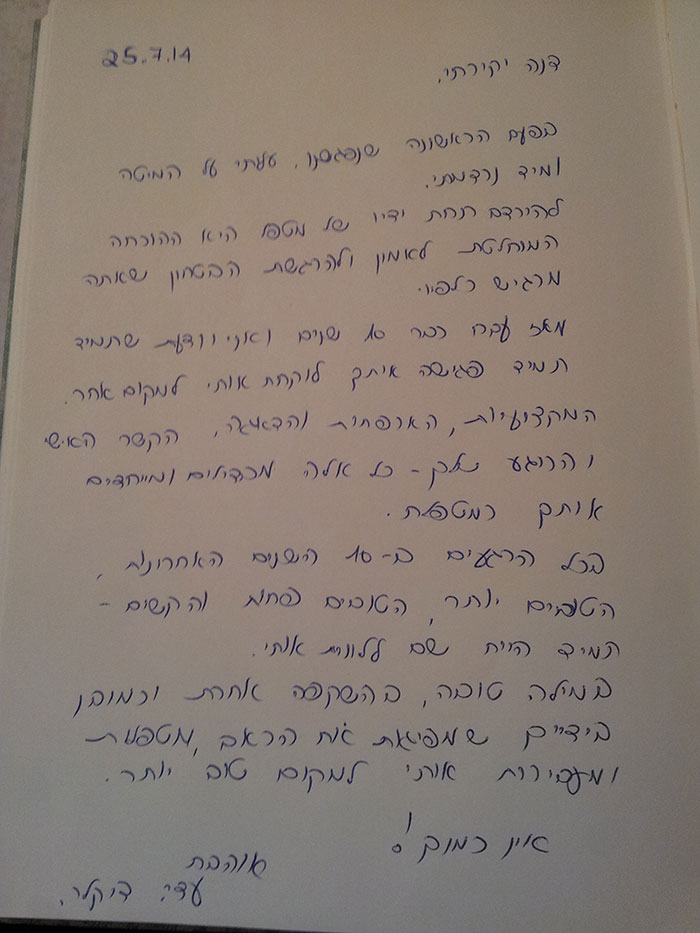 25.7.14
דנה יקירתי,
בפעם הראשונה שנפגשנו, עליתי על המיטה
ומיד נרדמתי.
להירדם תחת ידיו של מטפל היא ההוכחה
המוחלטת לאמון ולהרגשת הבטחון שאתה
מרגיש כלפיו.
מאז עברו כבר 10 שנים ואני יודעת שתמיד
תמיד פגישה איתך לוקחת אותי למקום אחר.
המקצועיות, האכפתיות והדאגה, הקשר האישי
והרוגע שלך - כל אלה מבדילים ומייחדים
אותך כמטפלת.
בכל הרגעים ב-10 השנים האחרונות,
הטובים יותר, הטובים פחות והקשים -
תמיד היית שם ללוות אותי.
במילה טובה, בהשקפה אחרת וכמובן
בידיים שמפיגות את הכאב, מטפלות
ומעבירות אותי למקום טוב יותר.
אין כמוך!
אוהבת
עדי דיקלר.